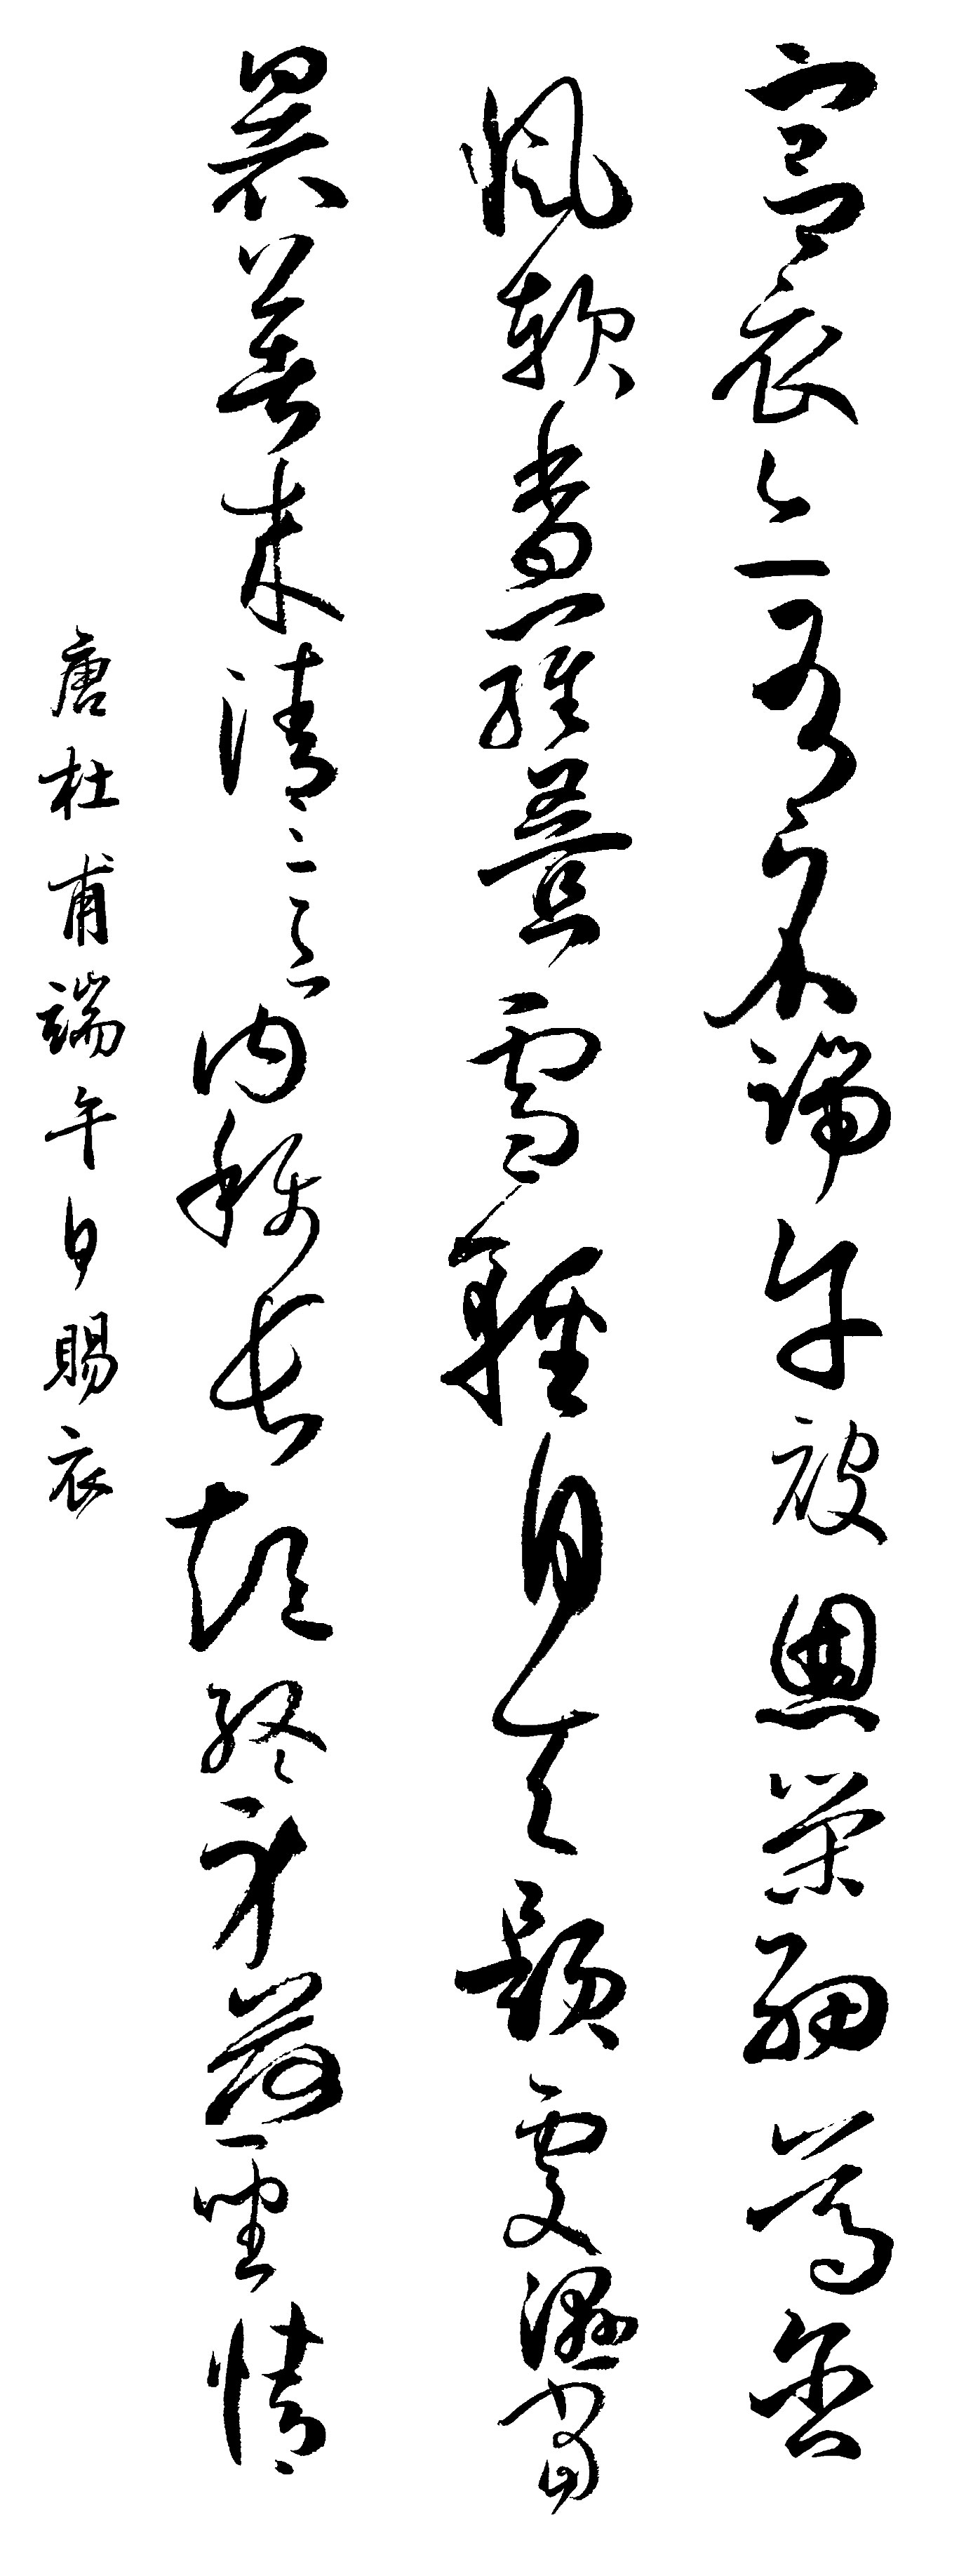 宫衣亦有名端午被恩荣细葛含
风软香罗叠雪轻自天题处湿当
暑着来清意内称长短终身荷圣情
唐杜甫端午日赐衣